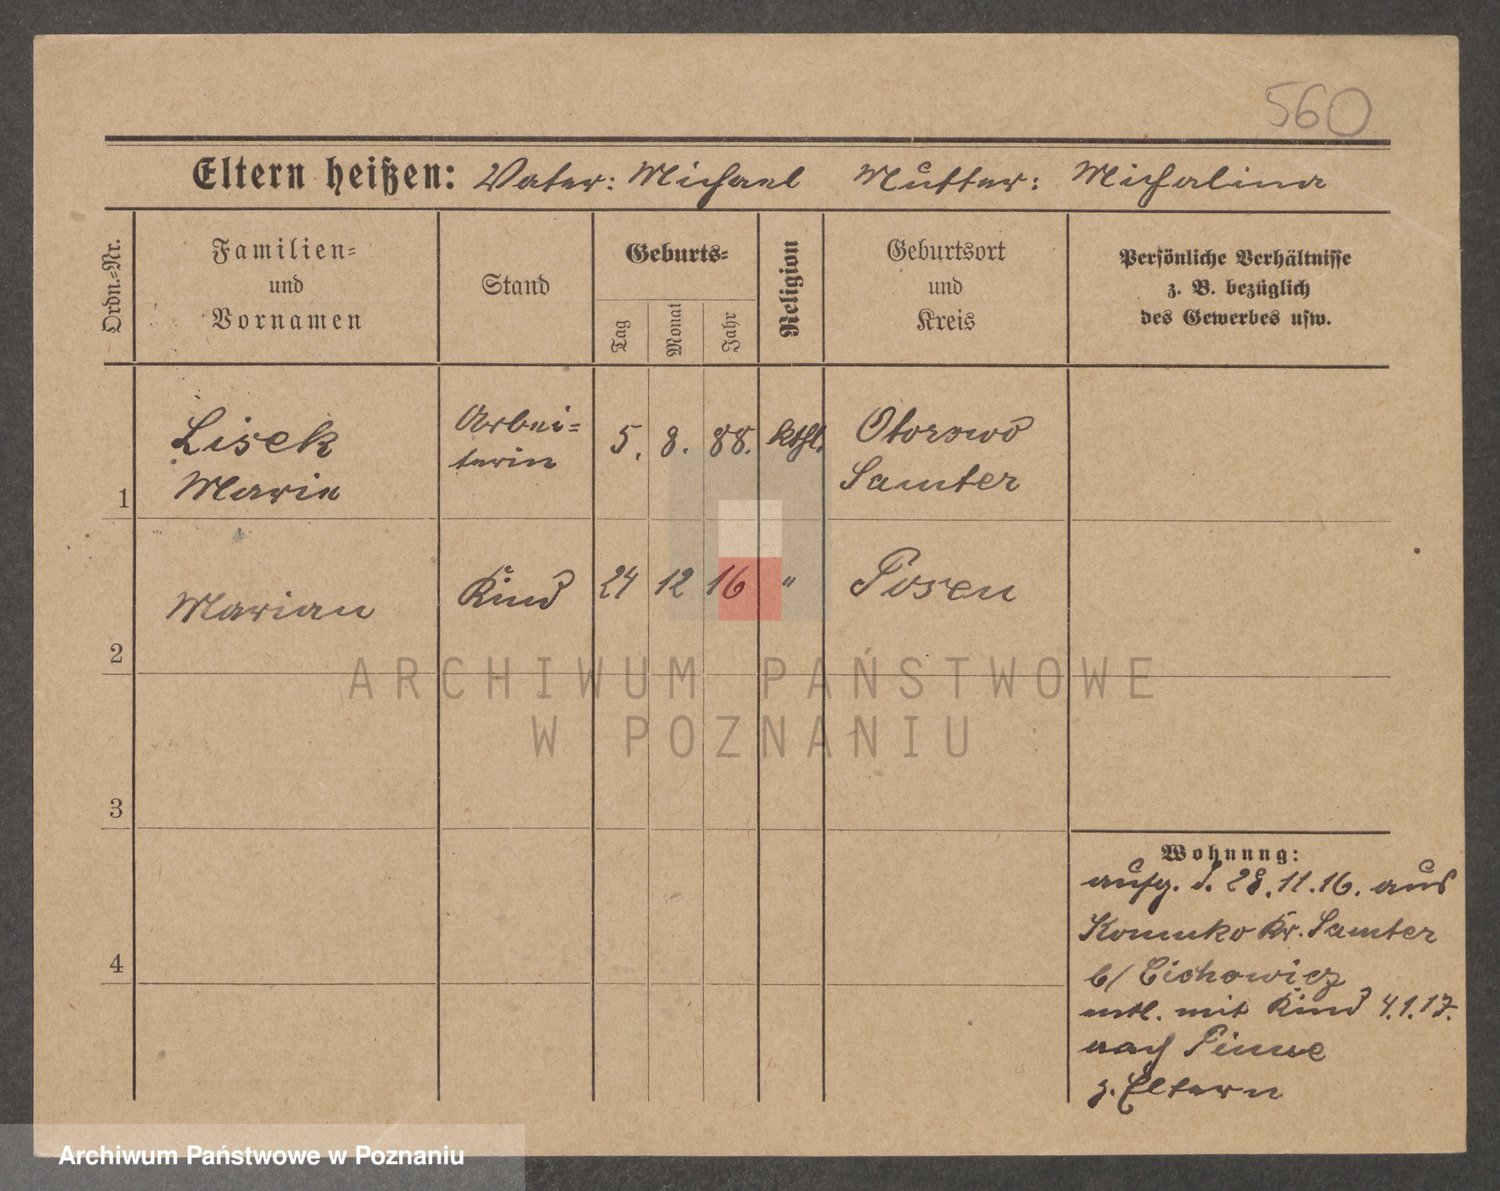 560
Eltern heißen: Vater: Michael Mutter: Michalina
Ordn.-Nr.
Familien-
und
Vornamen
Stand
Geburts-
Tag
Monat
Jahr
Religion
Geburtsort
und
Kreis
Persönliche Verhältnisse
z. B. bezüglich
des Gewerbes usw.
1
Lisek
Marie
Arbei-
terin
5. 8. 88. kthl.
Otorowo
Samter
2
Marian
Kind
24 12 16 "
Posen
ARCHIWUM PAŃSTWOWE
W POZNANIU
3
4
Wohnung:
aufg. d. 28.11.16. aus
Kr. Samter
b/ Cichowicz
entl. mit Kind 4.1.17.
nach Pinne
z. Eltern
Archiwum Państwowe w Poznaniu